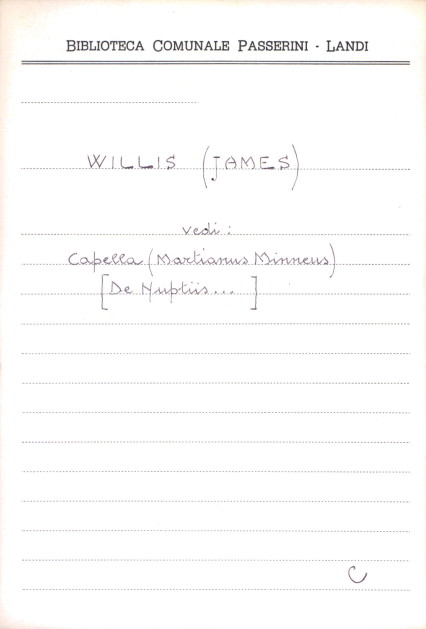 BIBLIOTECA COMUNALE PASSERINI - LANDI
WILLIS (JAMES)
vedi:
Capella (Martianus Minneus)
[De Nuptiis...]
C